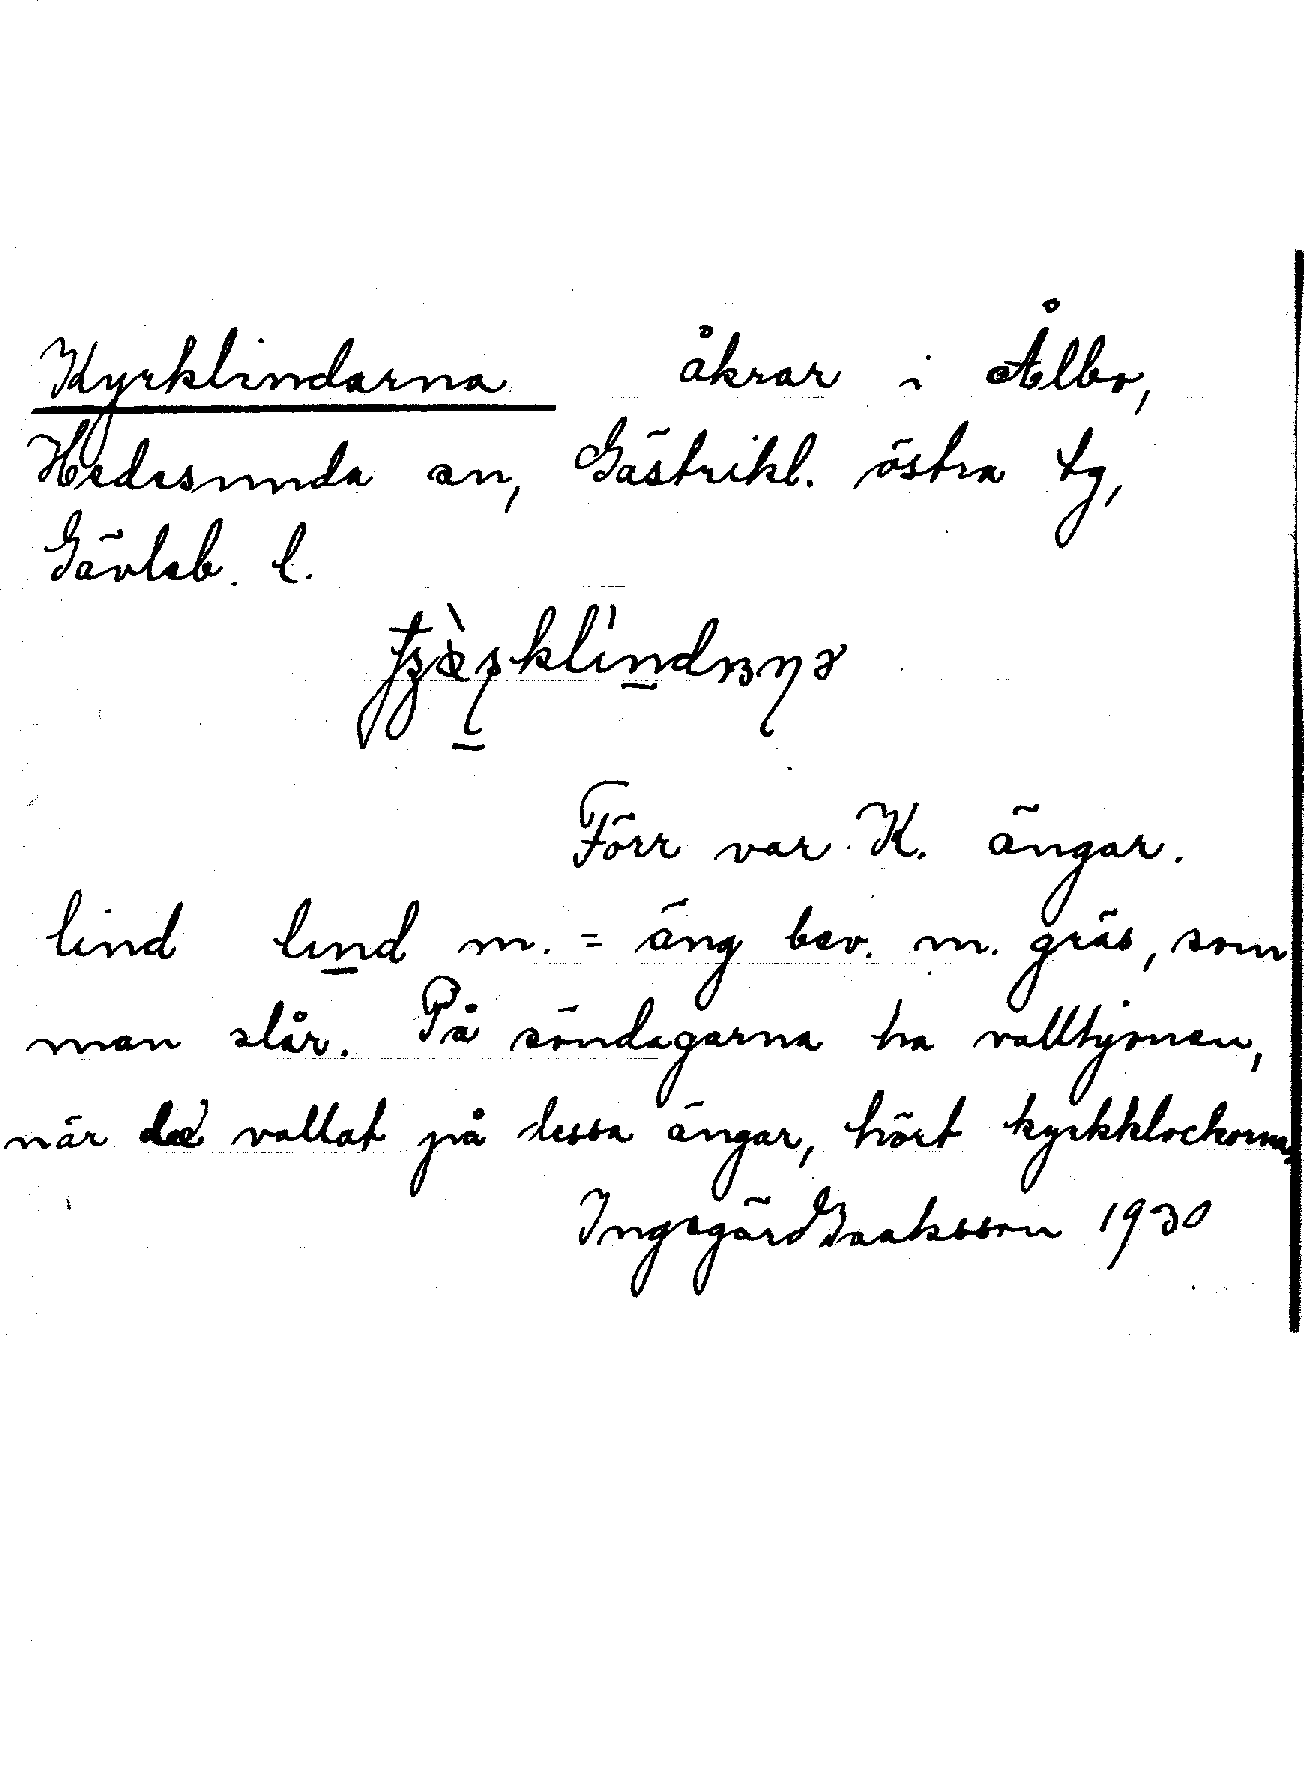 Kyrklindarna åkrar i Ålbo,
Hedesunda sn, Gästrikl. östra tg,
Gävleb. l.
Förr var K. ängar.
lind lınd m. = äng bev. m. gräs, som
man slår. På söndagarna ha valltjonen,
när de vallat på dessa ängar, hört kyrkklockorna.
Ingegärd Isaksson 1930